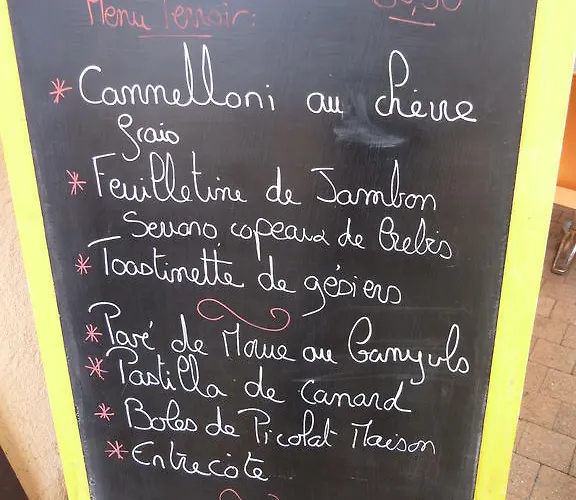 Menu Terroir:
* Cannelloni au chèvre
frais
* Feuilletine de Jambon
Serrano copeaux de Brebis
* Toastinette de gésiers
* Pavé de Morue au Banyuls
* Pastilla de canard
* Boles de Picolat Maison
* Entrecôte